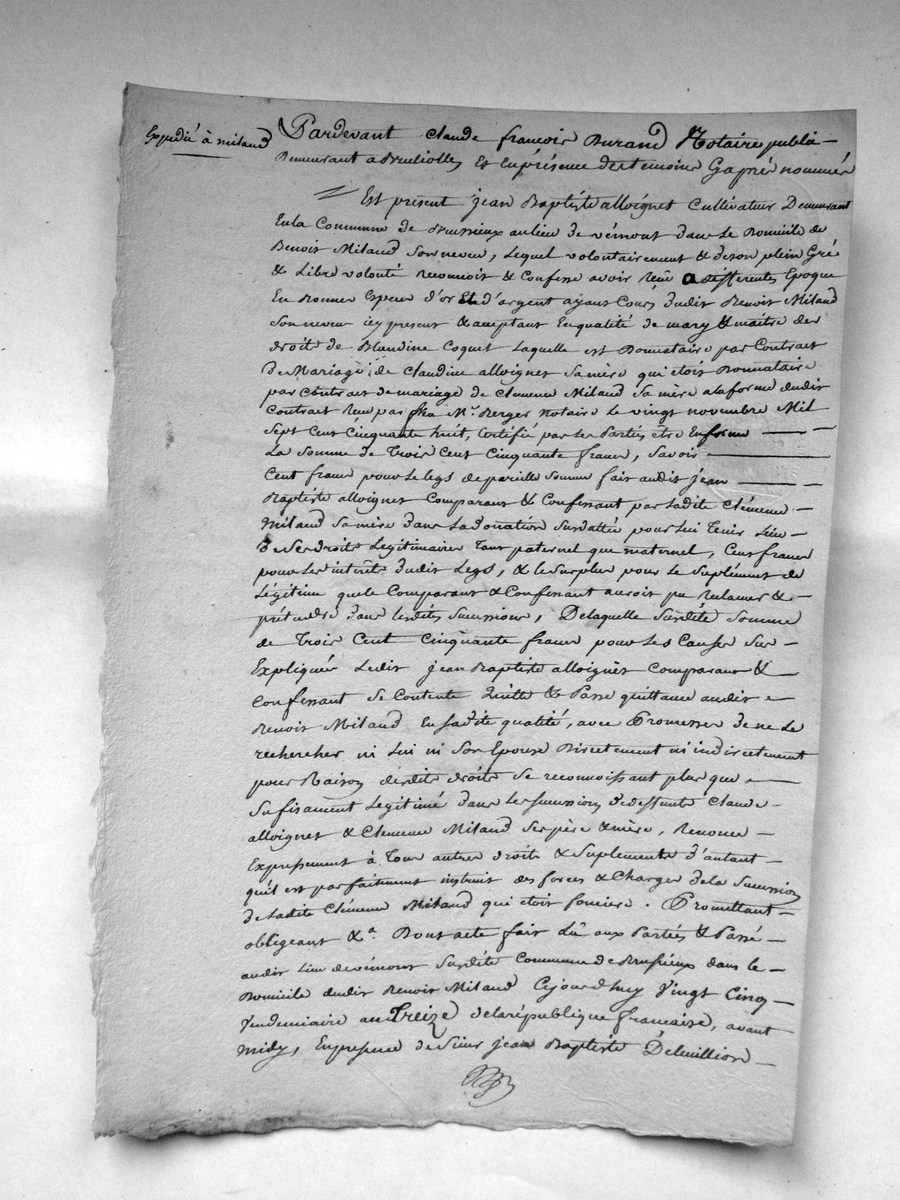 Expédié à milaud
Pardevant claude françois Durand Notaire public
Demeurant a Brulioles Et En présence des temoins Cy après nommés
Est present jean Baptiste alloignet Cultivateur Demeurant
En la Commune de Brussieux au lieu de vémont dans Le Domicile de
Benoit Milaud Son neveu, Lequel volontairement & de son plein Gré
& Libre volonté reconnoit & Confesse avoir Reçu a differentes Epoque
En bonnes Espece d'or Et d'argent ayant Cours dudit Benoit Milaud
Son neveu icy present & acceptant En qualité de mary & maitre des
droits de Blandine Coquet Laquelle est Donnataire par Contrat
de Mariage de Claudine alloignet Sa mère qui étoit Donnataire
par Contrat de mariage de Clemence Milaud Sa mère a la forme dudit
Contrat Reçu par Me. Berger notaire Le vingt novembre Mil
Sept Cent Cinquante huit, Certifié par les Parties être En forme
La Somme de Trois Cent Cinquante francs, Savoir
Cent francs pour le legs de pareille Somme fait audit jean
Baptiste alloignet Comparant & Confessant par Ladite Clémence
Milaud Sa mère dans La donation Susdattée pour Lui Tenir Lieu
de Ses droits Légitimaires Tant paternel que maternel, Cent francs
pour les interets dudit Legs, & le Surplus pour Le Suplément de
Légitime que le Comparant & Confessant auroit pu reclamer &
prétendre dans lesdites Successions, De laquelle Susdite Somme
de Trois Cent Cinquante francs pour les Causes Sus
Expliquées Ledit jean Baptiste alloignet Comparant &
Confessant Se Contente Quitte & Passe quittance audit
Benoit Milaud En Sadite qualité, avec Promesse de ne Le
rechercher ni Lui ni Son Epouse Directement ni indirectement
pour Raison desdits droits Se reconnoissant plus que
Sufisament Legitimé dans Les Succession de deffunts Claude
alloignet & Clemence Milaud Ses père & mère, Renonce
Expressement à Tous autres droits & Suplements d'autant
qu'il est parfaitement instruit des forces & Charges de la Succession
de Ladite Clémence Milaud qui étoit foncière. Promettant
obligeant &a. Dont acte fait Lû aux Parties & Passé
audit Lieu de vémont Susdite Commune de Brussieux dans le
Domicile dudit Benoit Milaud Cejourd'huy Vingt Cinq
Vendemiaire an Treize de la république française, avant
Midy, En presence de Sieur jean Baptiste